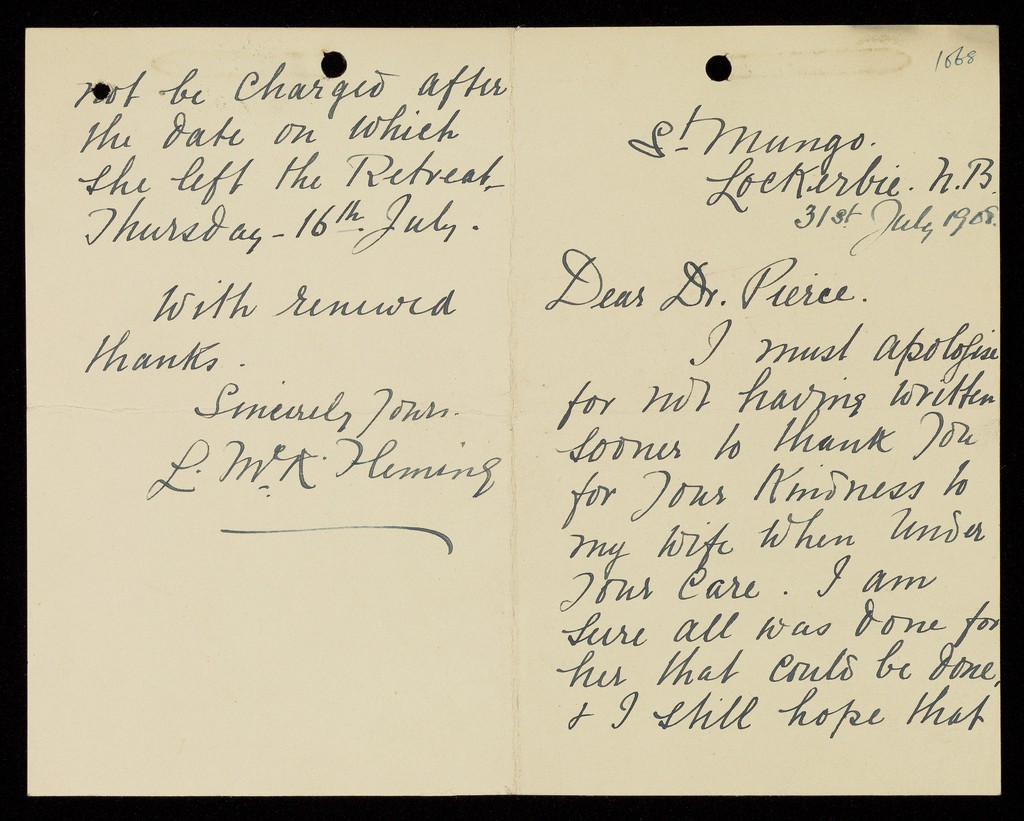 1668
St. Mungo.
Lockerbie. N.B.
31st July 1908.
Dear Dr. Pierce.
I must apologise
for not having written
sooner to thank you
for your kindness to
my wife when under
your care. I am
sure all was done for
her that could be done,
& I still hope that
not be charged after
the date on which
she left the Retreat_
Thursday - 16th. July.
With renewed
thanks.
Sincerely yours.
L. McK. Fleming